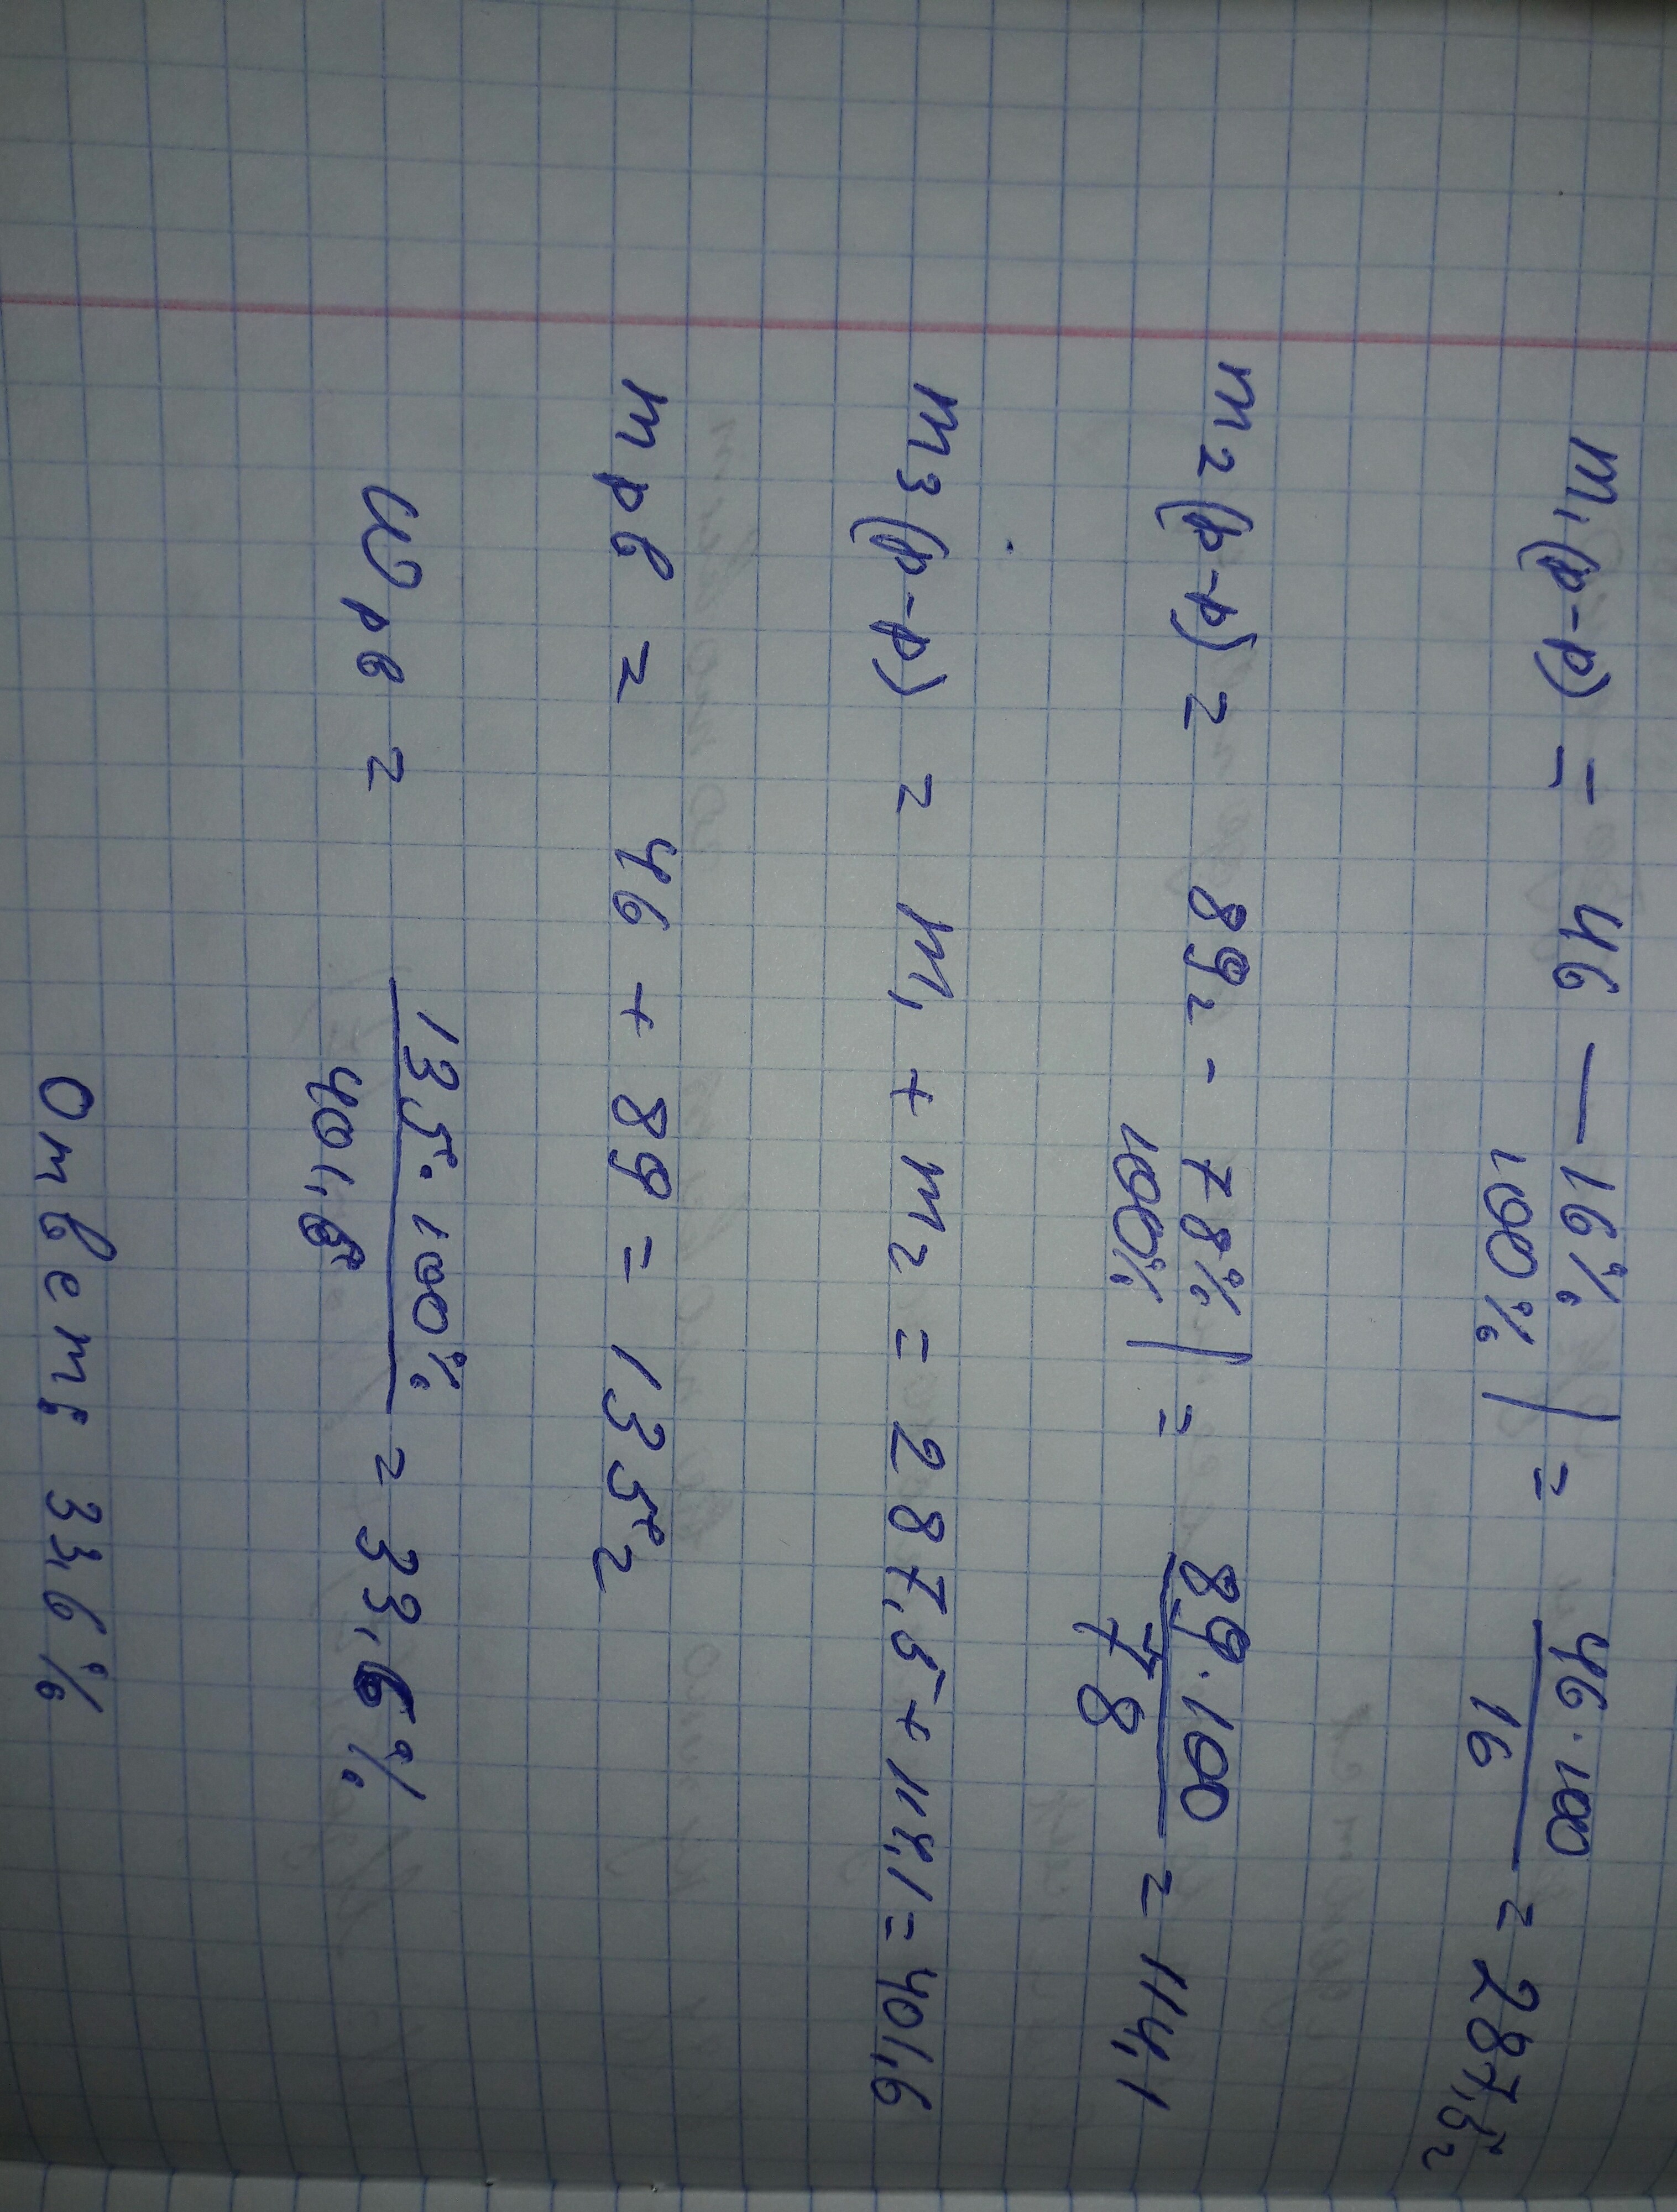 m₁(р-р) = 46 — 16%
100% | = 46·100 / 16 = 287,5г
m₂(р-р) = 89г - 78%
100% | = 89·100 / 78 = 114,1
m₃(р-р) = m₁ + m₂ = 287,5 + 114,1 = 401,6
mрв = 46 + 89 = 135г
ωрв = 135·100% / 401,6 = 33,6%
Ответ: 33,6%